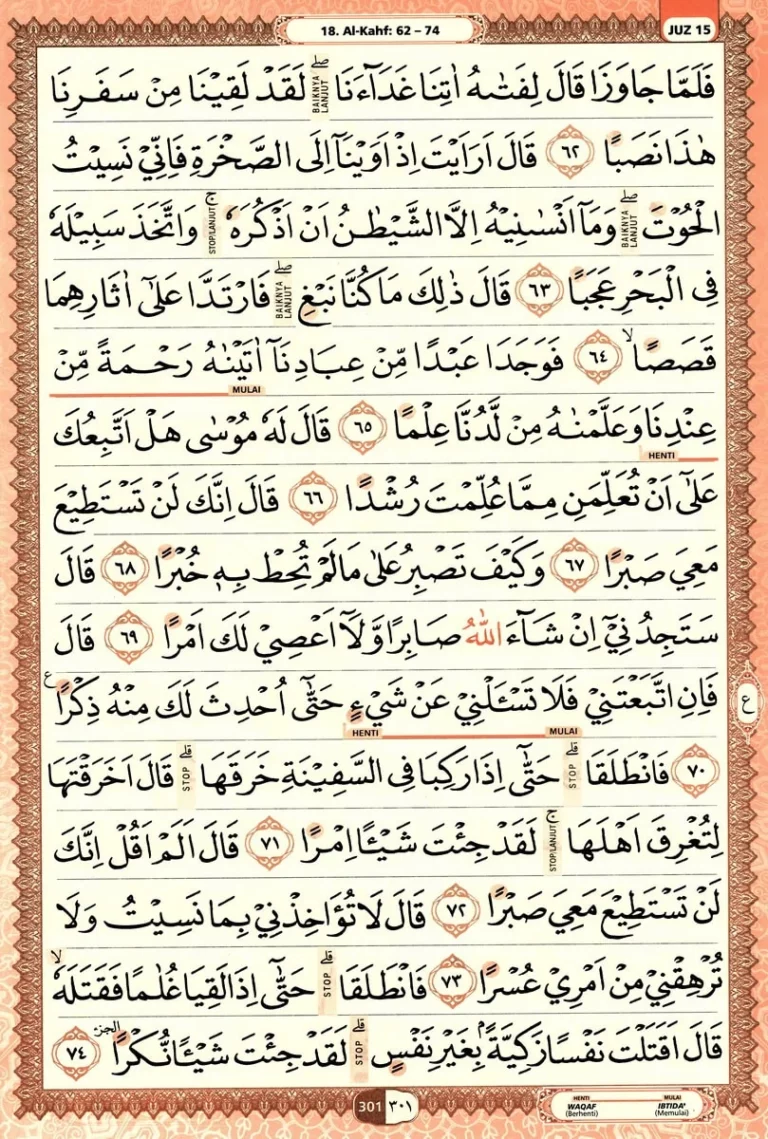 18. Al-Kahf: 62 – 74
JUZ 15
فَلَمَّا جَاوَزَا قَالَ لِفَتٰىهُ اٰتِنَا غَدَاۤءَنَاۖ لَقَدْ لَقِيْنَا مِنْ سَفَرِنَا
BAIKNYA LANJUT
هٰذَا نَصَبًا ٦٢ قَالَ اَرَاَيْتَ اِذْ اَوَيْنَآ اِلَى الصَّخْرَةِ فَاِنِّيْ نَسِيْتُ
الْحُوْتَۖ وَمَآ اَنْسٰىنِيْهُ اِلَّا الشَّيْطٰنُ اَنْ اَذْكُرَهٗۚ وَاتَّخَذَ سَبِيْلَهٗ
BAIKNYA LANJUT
STOP/LANJUT
فِى الْبَحْرِ عَجَبًا ٦٣ قَالَ ذٰلِكَ مَا كُنَّا نَبْغِۖ فَارْتَدَّا عَلٰٓى اٰثَارِهِمَا
BAIKNYA LANJUT
قَصَصًاۙ ٦٤ فَوَجَدَا عَبْدًا مِّنْ عِبَادِنَآ اٰتَيْنٰهُ رَحْمَةً مِّنْ
MULAI
عِنْدِنَا وَعَلَّمْنٰهُ مِنْ لَّدُنَّا عِلْمًا ٦٥ قَالَ لَهٗ مُوْسٰى هَلْ اَتَّبِعُكَ
HENTI
عَلٰٓى اَنْ تُعَلِّمَنِ مِمَّا عُلِّمْتَ رُشْدًا ٦٦ قَالَ اِنَّكَ لَنْ تَسْتَطِيْعَ
مَعِيَ صَبْرًا ٦٧ وَكَيْفَ تَصْبِرُ عَلٰى مَا لَمْ تُحِطْ بِهٖ خُبْرًا ٦٨ قَالَ
سَتَجِدُنِيْٓ اِنْ شَاۤءَ اللّٰهُ صَابِرًا وَّلَآ اَعْصِيْ لَكَ اَمْرًا ٦٩ قَالَ
فَاِنِ اتَّبَعْتَنِيْ فَلَا تَسْـَٔلْنِيْ عَنْ شَيْءٍ حَتّٰٓى اُحْدِثَ لَكَ مِنْهُ ذِكْرًا ࣖ
ع
HENTI MULAI
٧٠ فَانْطَلَقَاۗ حَتّٰٓى اِذَا رَكِبَا فِى السَّفِيْنَةِ خَرَقَهَاۗ قَالَ اَخَرَقْتَهَا
STOP
STOP
لِتُغْرِقَ اَهْلَهَاۚ لَقَدْ جِئْتَ شَيْـًٔا اِمْرًا ٧١ قَالَ اَلَمْ اَقُلْ اِنَّكَ
STOP/LANJUT
لَنْ تَسْتَطِيْعَ مَعِيَ صَبْرًا ٧٢ قَالَ لَا تُؤَاخِذْنِيْ بِمَا نَسِيْتُ وَلَا
تُرْهِقْنِيْ مِنْ اَمْرِيْ عُسْرًا ٧٣ فَانْطَلَقَاۗ حَتّٰٓى اِذَا لَقِيَا غُلٰمًا فَقَتَلَهٗۙ
STOP
قَالَ اَقَتَلْتَ نَفْسًا زَكِيَّةً ۢبِغَيْرِ نَفْسٍۗ لَقَدْ جِئْتَ شَيْـًٔا نُّكْرًا ٧٤
STOP
الجزء
301 ٣٠١
HENTI MULAI
WAQAF IBTIDA'
(Berhenti) (Memulai)